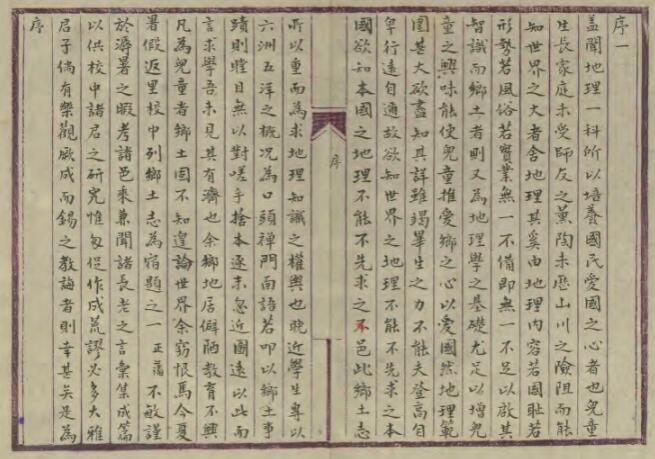 序一
盖聞地理一科所以培養國民愛國之心者也兒童
生長家庭未受師友之薰陶未歷山川之險阻而能
知世界之大者舍地理其奚由地理內容若國耻若
形勢若風俗若實業無一不備即無一不足以啟其
智識而鄉土者則又為地理學之基礎尤足以增兒
童之興味能使兒童推愛鄉之心以愛國然地理範
圍甚大欲盡知其詳雖竭畢生之力不能夫登高自
卑行遠自邇故欲知世界之地理不能不先求之本
國欲知本國之地理不能不先求之本邑此鄉土志
序
所以重而為求地理知識之權輿也晚近學生專以
六洲五洋之概况為口頭禪門面語若叩以鄉土事
蹟則瞠目無以對嗟乎捨本逐末忽近圖遠以此而
言求學吾未見其有濟也余鄉地居僻陋教育不興
凡為兒童者鄉土固不知遑論世界余竊恨焉今夏
暑假返里校中列鄉土志為宿題之一 正 不敏謹
於溽暑之暇考諸邑乘兼聞諸長老之言彙集成篇
以供校中諸君之研究惟匆促作成荒謬必多大雅
君子倘有樂觀厥成而錫之教誨者則幸甚矣是為
序